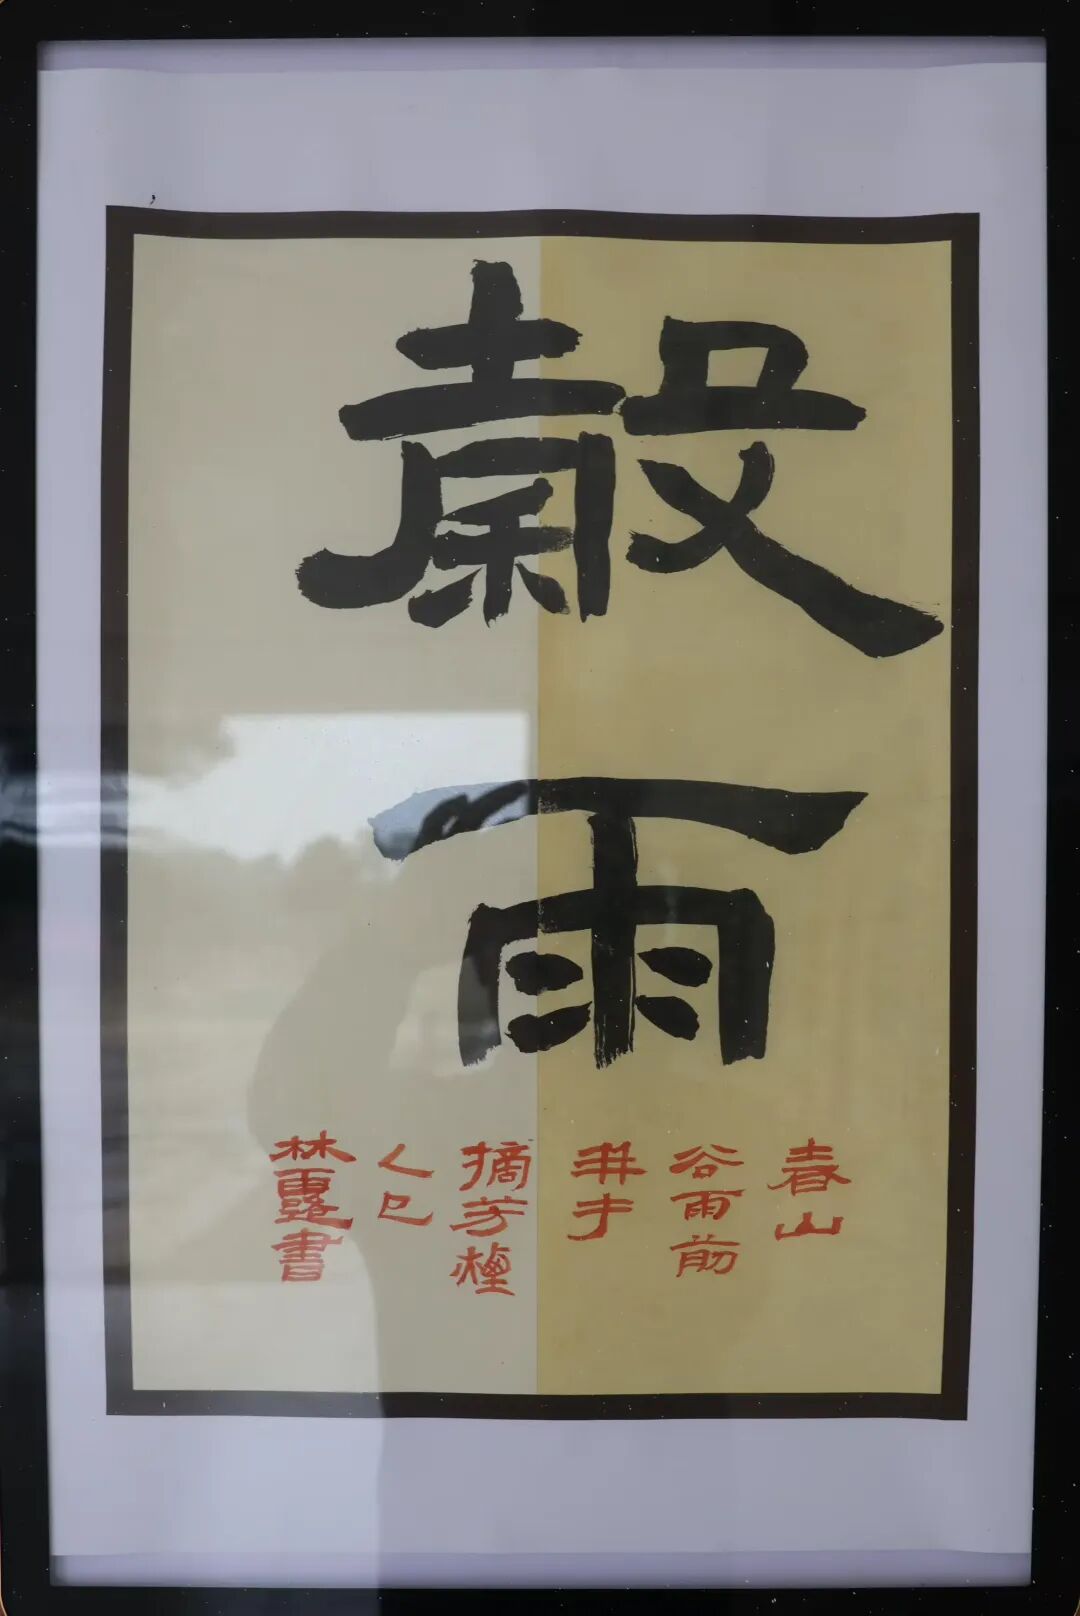 穀雨
春山
谷雨前
并手
摘芳煙
乙巳
林露書